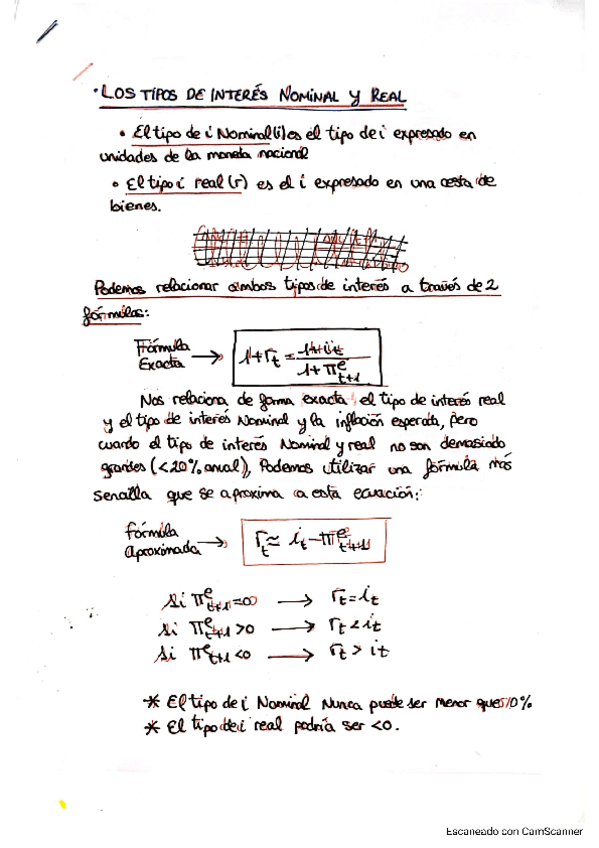 · LOS TIPOS DE INTERÉS NOMINAL Y REAL
• El tipo de i Nominal (i) es el tipo de i expresado en
unidades de la moneda nacional
• El tipo i real (r) es el i expresado en una cesta de
bienes.
Podemos relacionar ambos tipos de interés a través de 2
fórmulas:
Fórmula
Exacta → 1+rₜ = (1+iₜ)/(1+πᵉₜ₊₁)
Nos relaciona de forma exacta, el tipo de interés real
y el tipo de interés Nominal y la inflación esperada, pero
cuando el tipo de interés Nominal y real no son demasiado
grandes (<20% anual), Podemos utilizar una fórmula más
sencilla que se aproxima a esta ecuación:
Fórmula
aproximada → rₜ ≈ iₜ − πᵉₜ₊₁
Si πᵉₜ₊₁ = 0 → rₜ = iₜ
Si πᵉₜ₊₁ > 0 → rₜ < iₜ
Si πᵉₜ₊₁ < 0 → rₜ > iₜ
* El tipo de i Nominal Nunca puede ser menor que 0%
* El tipo de i real podría ser <0.
Escaneado con CamScanner